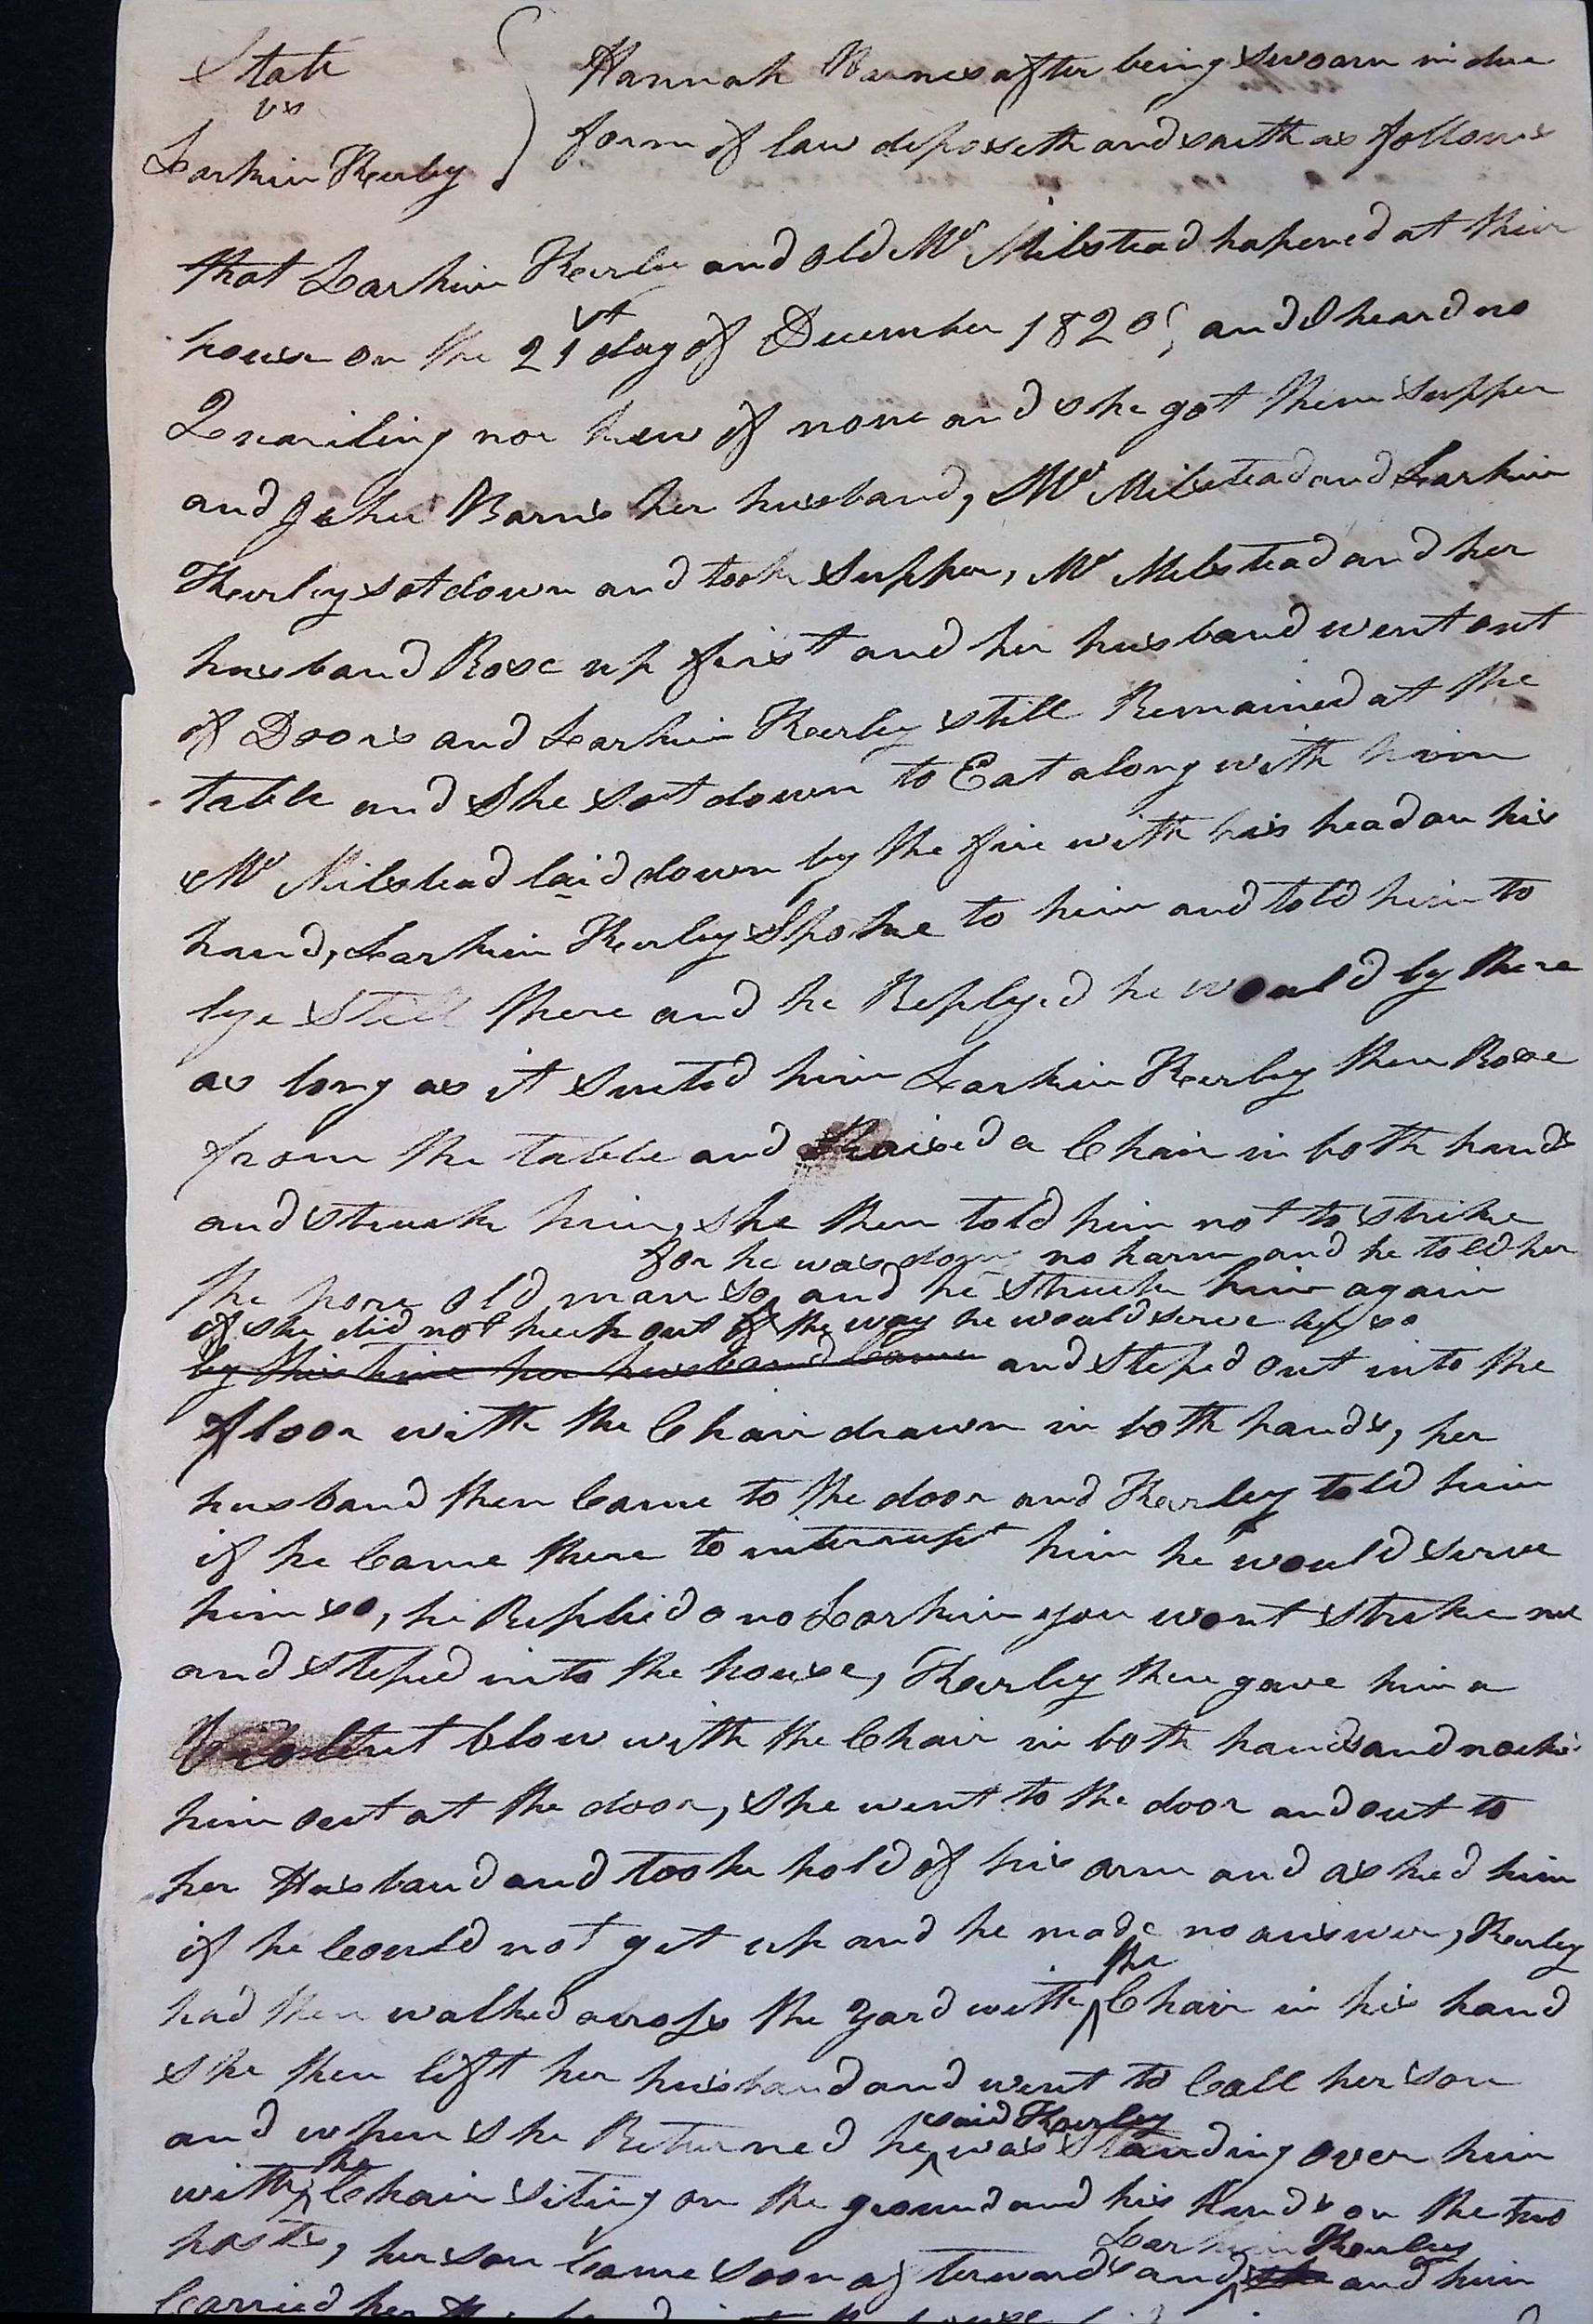 State
vs
Larkin Kerley
Hannah Barnes after being sworn in due
form of law deposeth and saith as follows
that Larkin Kerley and old Mr Milstead hapened at thier
house on the 21st day of December 1820, and I heard no
Quariling nor knew of none and she got them supper
and John Barns her husband, Mr Milstead and Larkin
Kerley sot down and took supper, Mr Milstead and her
husband Rose up first and her husband went out
of Doors and Larkin Kerley still Remained at the
table and She sot down to Eat along with him
Mr Milstead laid down by the fire with his head on his
hand, Larkin Kerley Spoke to him and told him to
lye still there and he Replyed he would ly there
as long as it suited him Larkin Kerley then Rose
from the table and Raised a Chair in both hands
and struck him, she then told him not to strike
for he was doing no harm and he told her
the pore old man so and he struck him again
if she did not keep out of the way he would serve her so
by this time her husband Came and steped out into the
floor with the Chair drawn in both hands, her
husband then Came to the door and Kerley told him
if he Came there to interrupt him he would serve
him so, he Replied o no Larkin you wont strike me
and steped into the house, Kerley then gave him a
Violent blow with the Chair in both hands and nockd
him out at the door, she went to the door and out to
her Husband and tooke hold of his arm and asked him
if he Could not get up and he made no answer, Kerley
had then walked across the yard with the Chair in his hand
she then left her husband and went to Call her son
and when she Returned he said Kerley was standing over him
with the Chair siting on the ground and his hands on the two
posts, her son Came soon afterwards and Larkin Kerley and him
Carried her